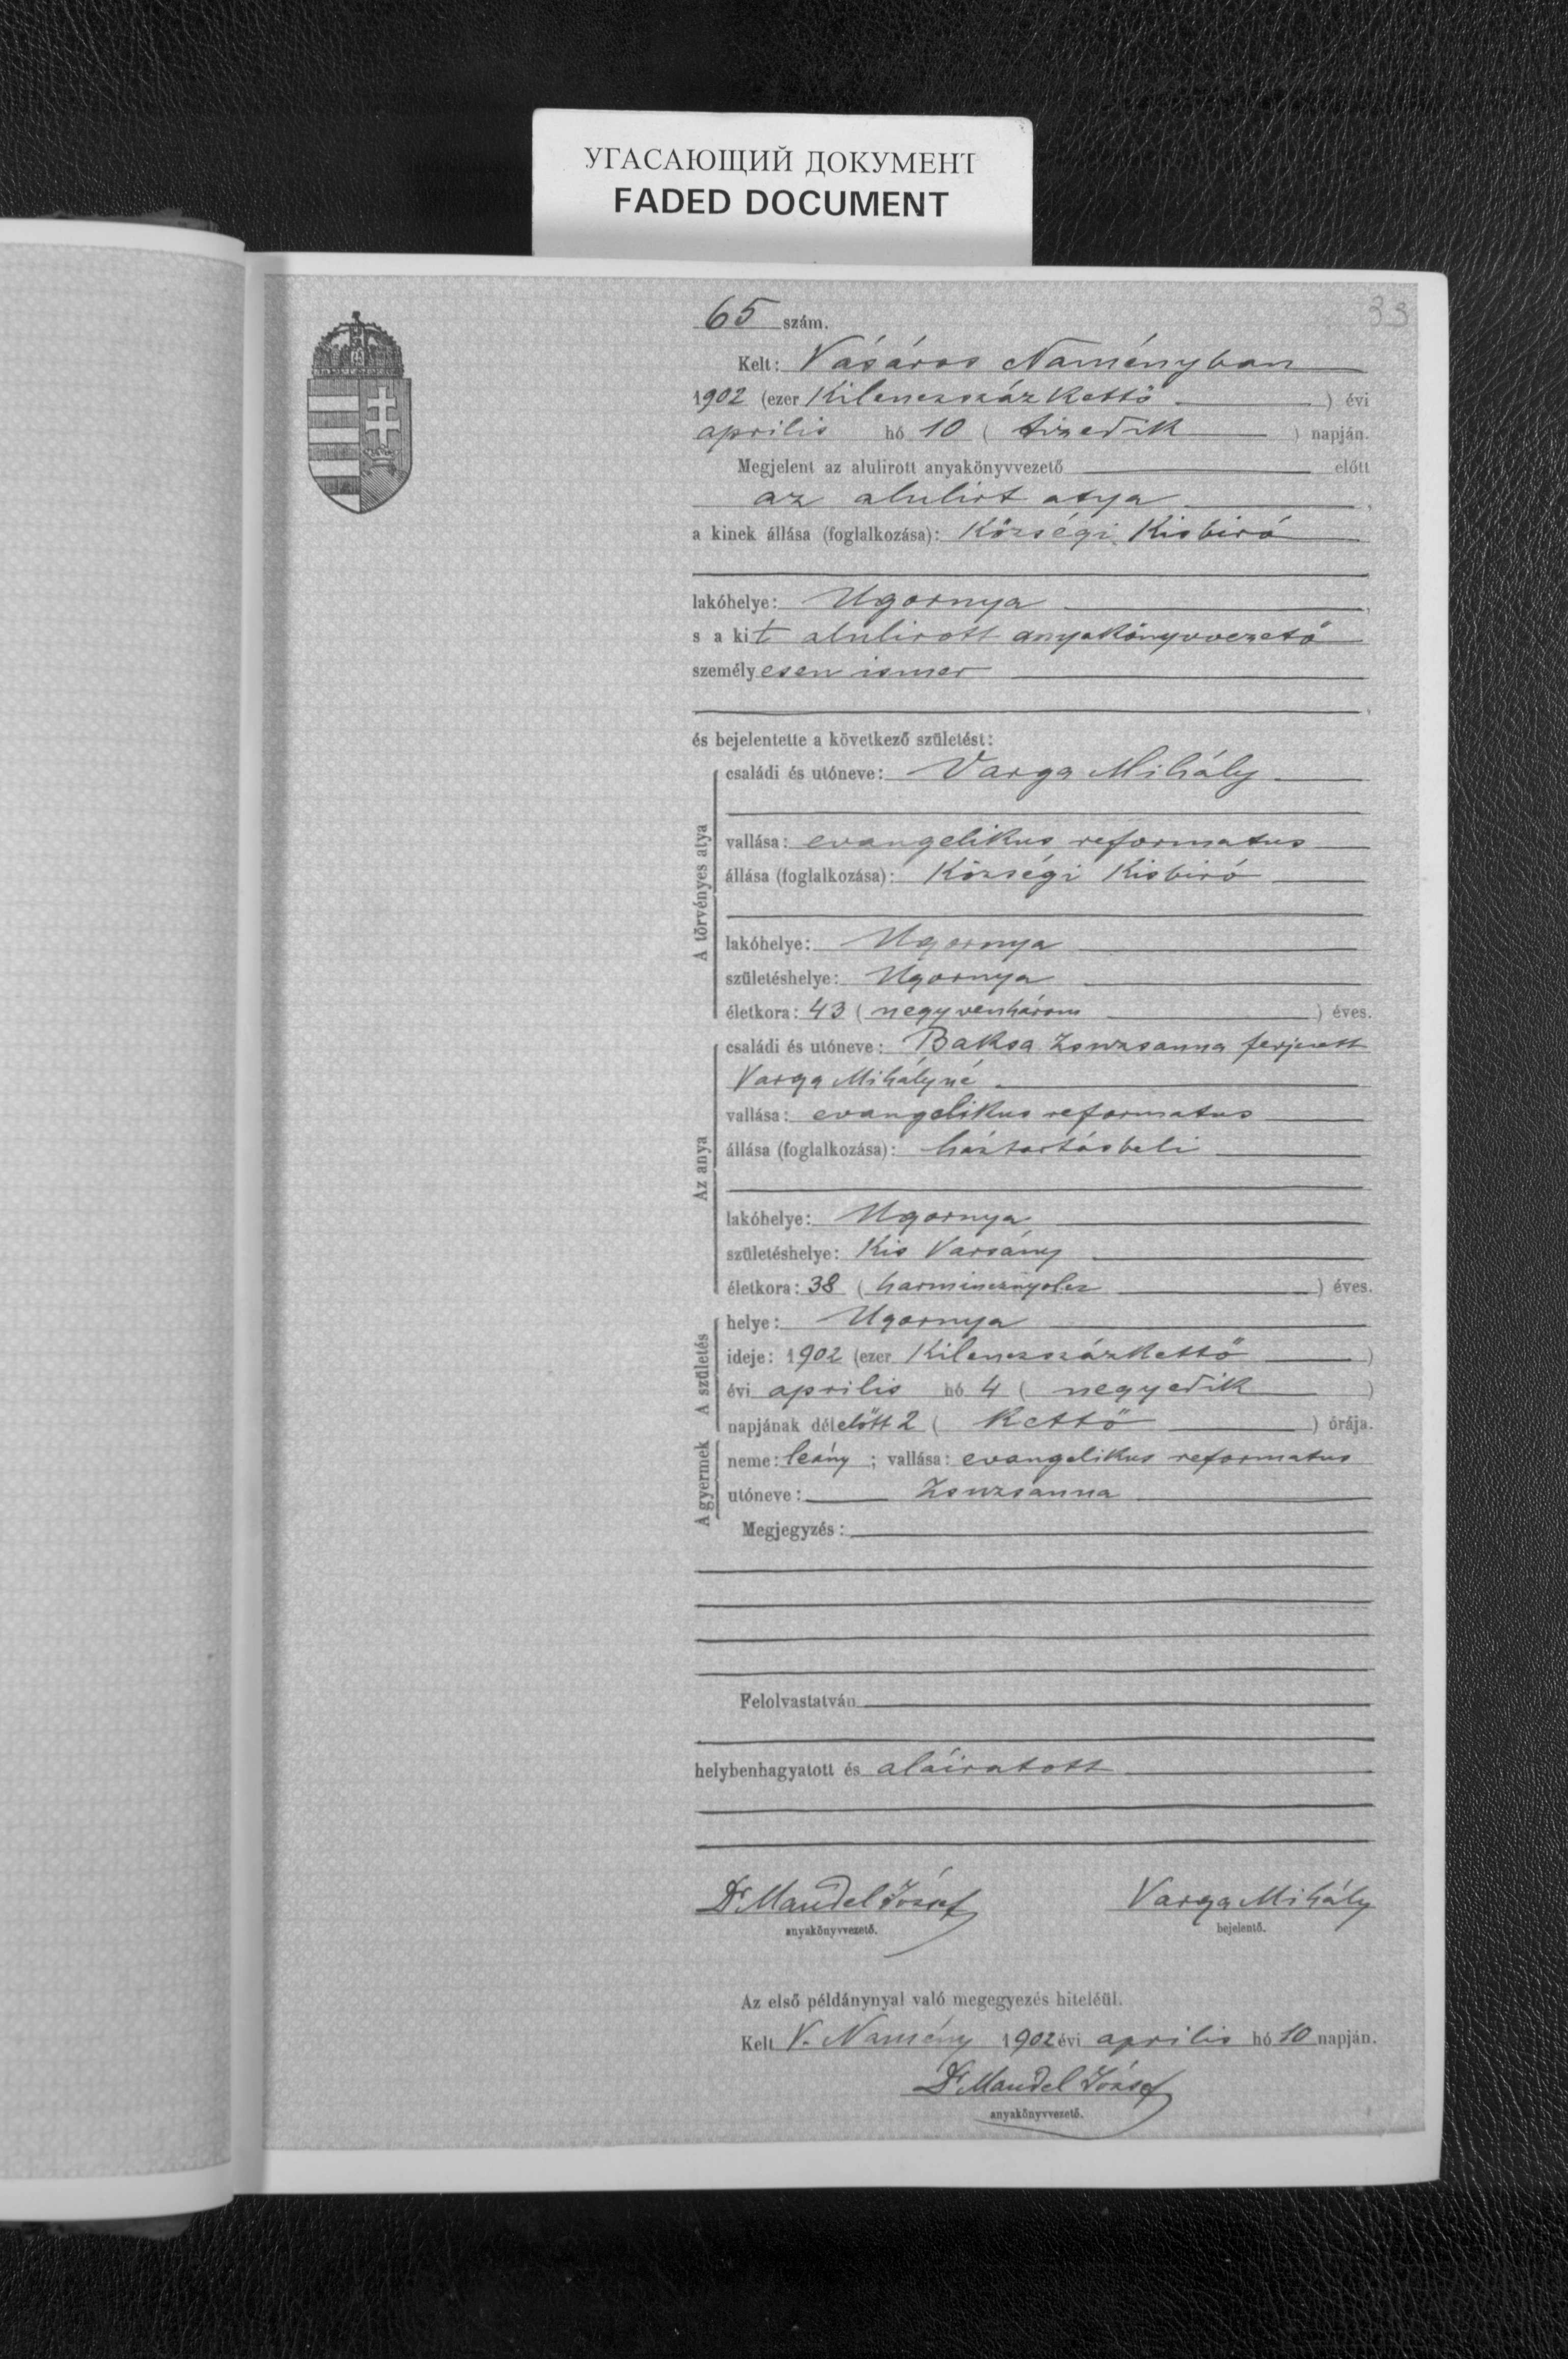 УГАСАЮЩИЙ ДОКУМЕНТ
FADED DOCUMENT
33
65 szám.
Kelt: Vásáros Naményban
1902 (ezer Kilenczszáz Kettő ) évi
aprilis hó 10 ( tizedik ) napján.
Megjelent az alulirott anyakönyvvezető előtt
az alulirt atya ,
a kinek állása (foglalkozása): Községi Kisbiró
lakóhelye: Ugornya ,
s a kit alulirott anyakönyvvezető
személyesen ismer
,
és bejelentette a következő születést:
A törvényes atya
családi és utóneve: Varga Mihály
vallása: evangelikus reformatus
állása (foglalkozása): Községi Kisbiró
lakóhelye: Ugornya
születéshelye: Ugornya
életkora: 43 ( negyvenhárom ) éves.
Az anya
családi és utóneve: Baksa Zsuzsanna ferjezett
Varga Mihályné
vallása: evangelikus reformatus
állása (foglalkozása): háztartásbeli
lakóhelye: Ugornya
születéshelye: Kis Varsány
életkora: 38 ( harmincznyolcz ) éves.
A születés
helye: Ugornya
ideje: 1902 (ezer Kilenczszázkettő )
évi aprilis hó 4 ( negyedik )
napjának délelőtt 2 ( Kettő ) órája.
A gyermek
neme: leány ; vallása: evangelikus reformatus
utóneve: Zsuzsanna
Megjegyzés:
Felolvastatván
helybenhagyatott és aláiratott
Dr Mandel József Varga Mihály
anyakönyvvezető. bejelentő.
Az első példánynyal való megegyezés hiteléül.
Kelt V. Namény 1902 évi aprilis hó 10 napján.
Dr Mandel József
anyakönyvvezető.